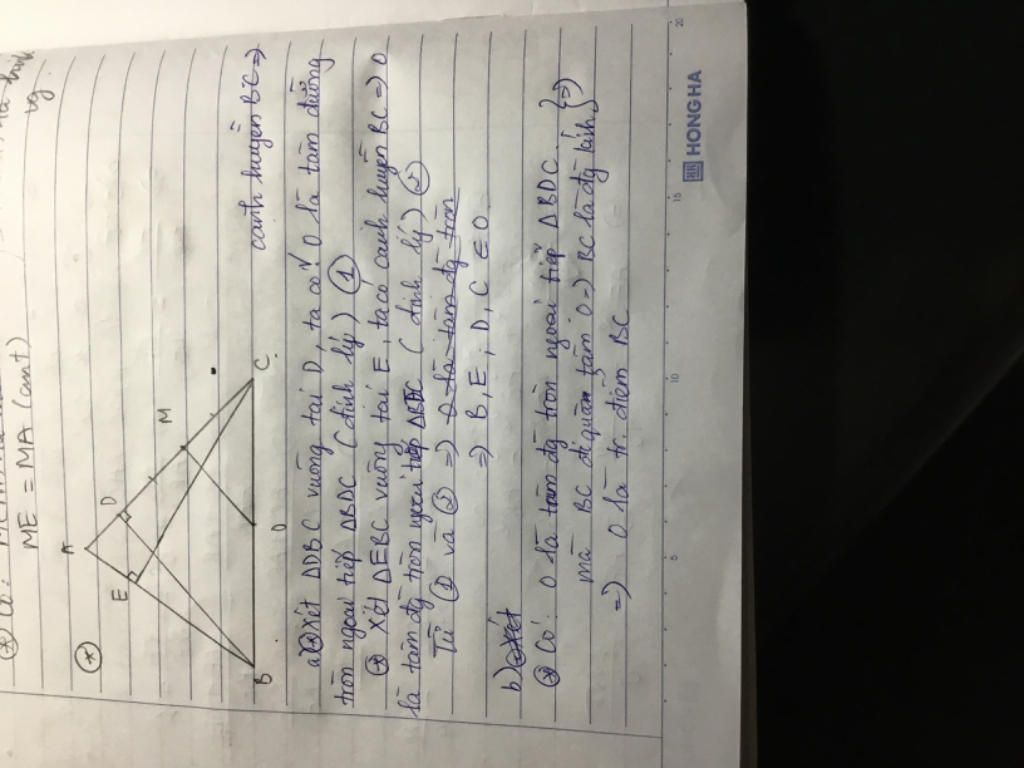 ME = MA (cmt)
*
A
D
E
M
B
O
C
cạnh huyền BC =>
a) * Xét ΔDBC vuông tại D, ta có O là tâm đường
tròn ngoại tiếp ΔBDC (định lý) 1
* Xét ΔEBC vuông tại E, ta có cạnh huyền BC => O
là tâm đg tròn ngoại tiếp ΔBEC (định lý) 2
Từ 1 và 2 => O là tâm đg tròn
=> B, E, D, C ∈ O
b) Xét
* Có: O là tâm đg tròn ngoại tiếp ΔBDC } =>
mà BC đi qua tâm O => BC là đg kính
=> O là tr. điểm BC
HONG HA
5 10 15 20